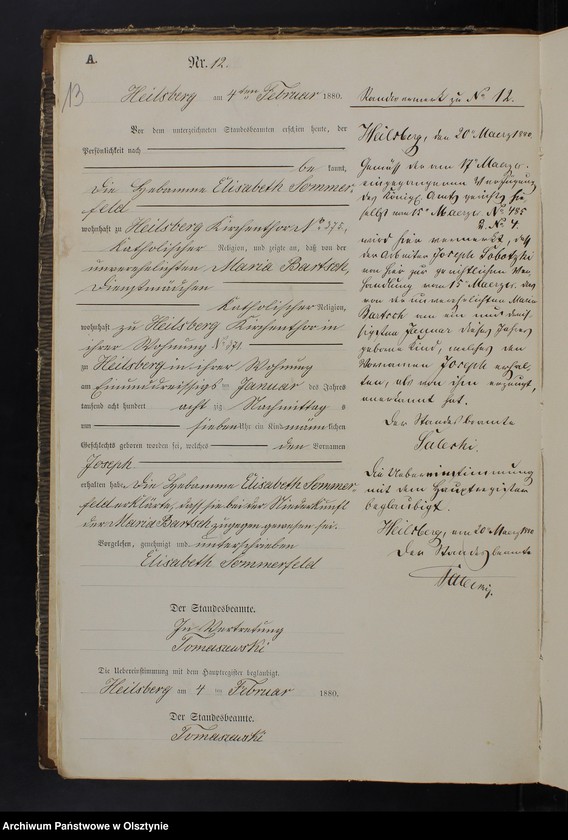 A.
Nr. 12.
13
Heilsberg am 4ten Februar 1880.
Vor dem unterzeichneten Standesbeamten erschien heute, der
Persönlichkeit nach
be kannt,
die Hebamme Elisabeth Sommer-
feld
wohnhaft zu Heilsberg Kirchenthor No 375,
katholischer Religion, und zeigte an, daß von der
unverehelichten Maria Bartsch,
Dienstmädchen
katholischer Religion,
wohnhaft zu Heilsberg Kirchenthor in
ihrer Wohnung No 371.
zu Heilsberg in ihrer Wohnung
am Einunddreissigsten Januar des Jahres
tausend acht hundert acht zig Nachmittag s
um sieben Uhr ein Kind männ lichen
Geschlechts geboren worden sei, welches den Vornamen
Joseph
erhalten habe. Die Hebamme Elisabeth Sommer-
feld erklärte, dass sie bei der Niederkunft
der Maria Bartsch zugegen gewesen sei.
Vorgelesen, genehmigt und unterschrieben
Elisabeth Sommerfeld
Der Standesbeamte.
In Vertretung
Tomaszewski
Die Uebereinstimmung mit dem Hauptregister beglaubigt.
Heilsberg am 4 ten Februar 1880.
Der Standesbeamte.
Tomaszewski
Randvermerk zu No 12.
Heilsberg, den 20ten Maerz 1880
Gemäss der am 17ten Maerz
eingegangenen Verfügung
des Königl. Amtsgerichts hie-
selbst vom 15ten Maerz No 485
No 4.
wird hier vermerkt, daß
der Arbeiter Joseph Sobotzki
von hier zur gerichtlichen Ver-
handlung vom 15ten Maerz das
von der unverehelichten Maria
Bartsch am ein und dreis-
sigsten Januar dieses Jahres
geborne Kind, welches den
Vornamen Joseph erhal-
ten, als von ihm erzeugt,
anerkannt hat.
Der Standesbeamte
Die Uebereinstimmung
mit dem Hauptregister
beglaubigt.
Heilsberg, am 20ten Maerz 1880
Der Standesbeamte
Archiwum Państwowe w Olsztynie